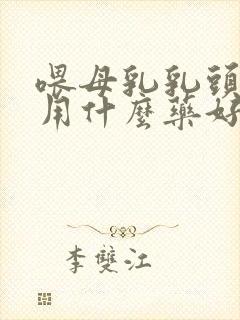 喂母乳乳頭
用什麼藥好
李雙江